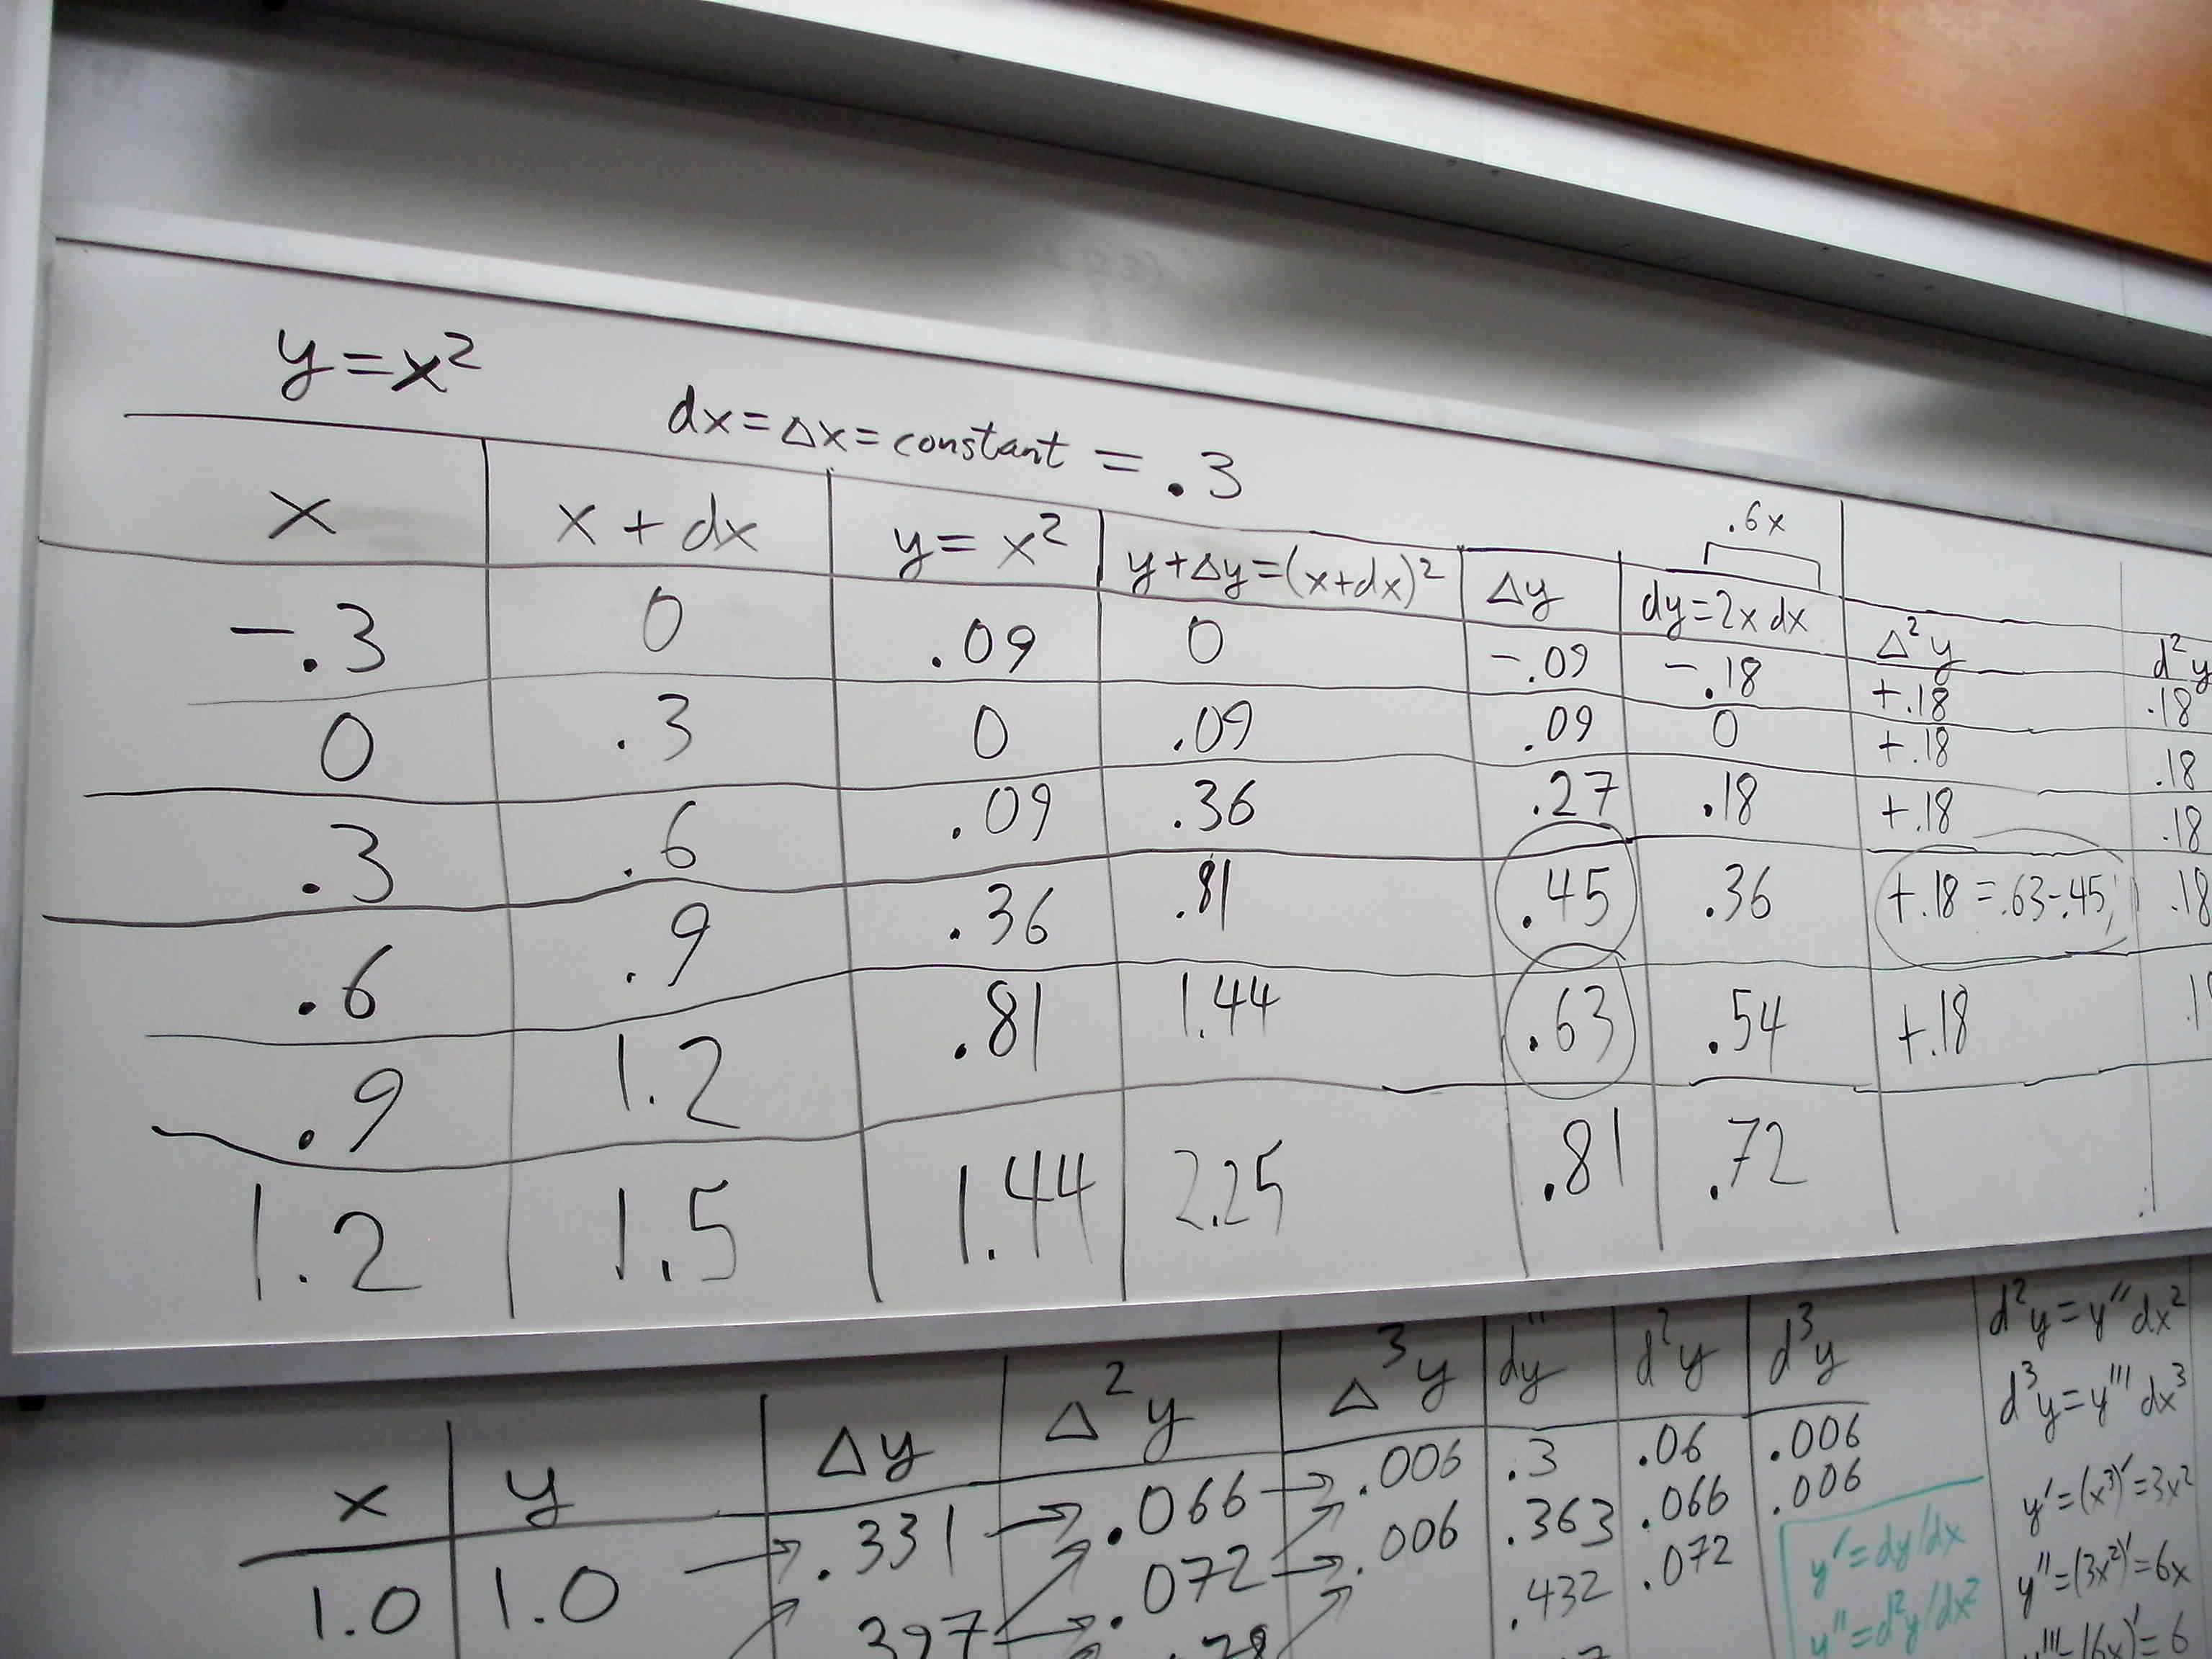 y=x²
dx=Δx=constant = .3
.6x
x x+dx y=x² y+Δy=(x+dx)² Δy dy=2x dx Δ²y d²y
-.3 0 .09 0 -.09 -.18 +.18 .18
0 .3 0 .09 .09 0 +.18 .18
.3 .6 .09 .36 .27 .18 +.18 .18
.6 .9 .36 .81 .45 .36 +.18=.63-.45 .18
.9 1.2 .81 1.44 .63 .54 +.18
1.2 1.5 1.44 2.25 .81 .72
x y Δy Δ²y Δ³y dy d²y d³y
1.0 1.0 .331 .066 .006 .3 .06 .006
.397 .072 .006 .363 .066 .006
.432 .072
d²y=y''dx²
d³y=y'''dx³
y'=(x³)'=3x²
y''=(3x²)'=6x
y'''=(6x)'=6
y'=dy/dx
y''=d²y/dx²